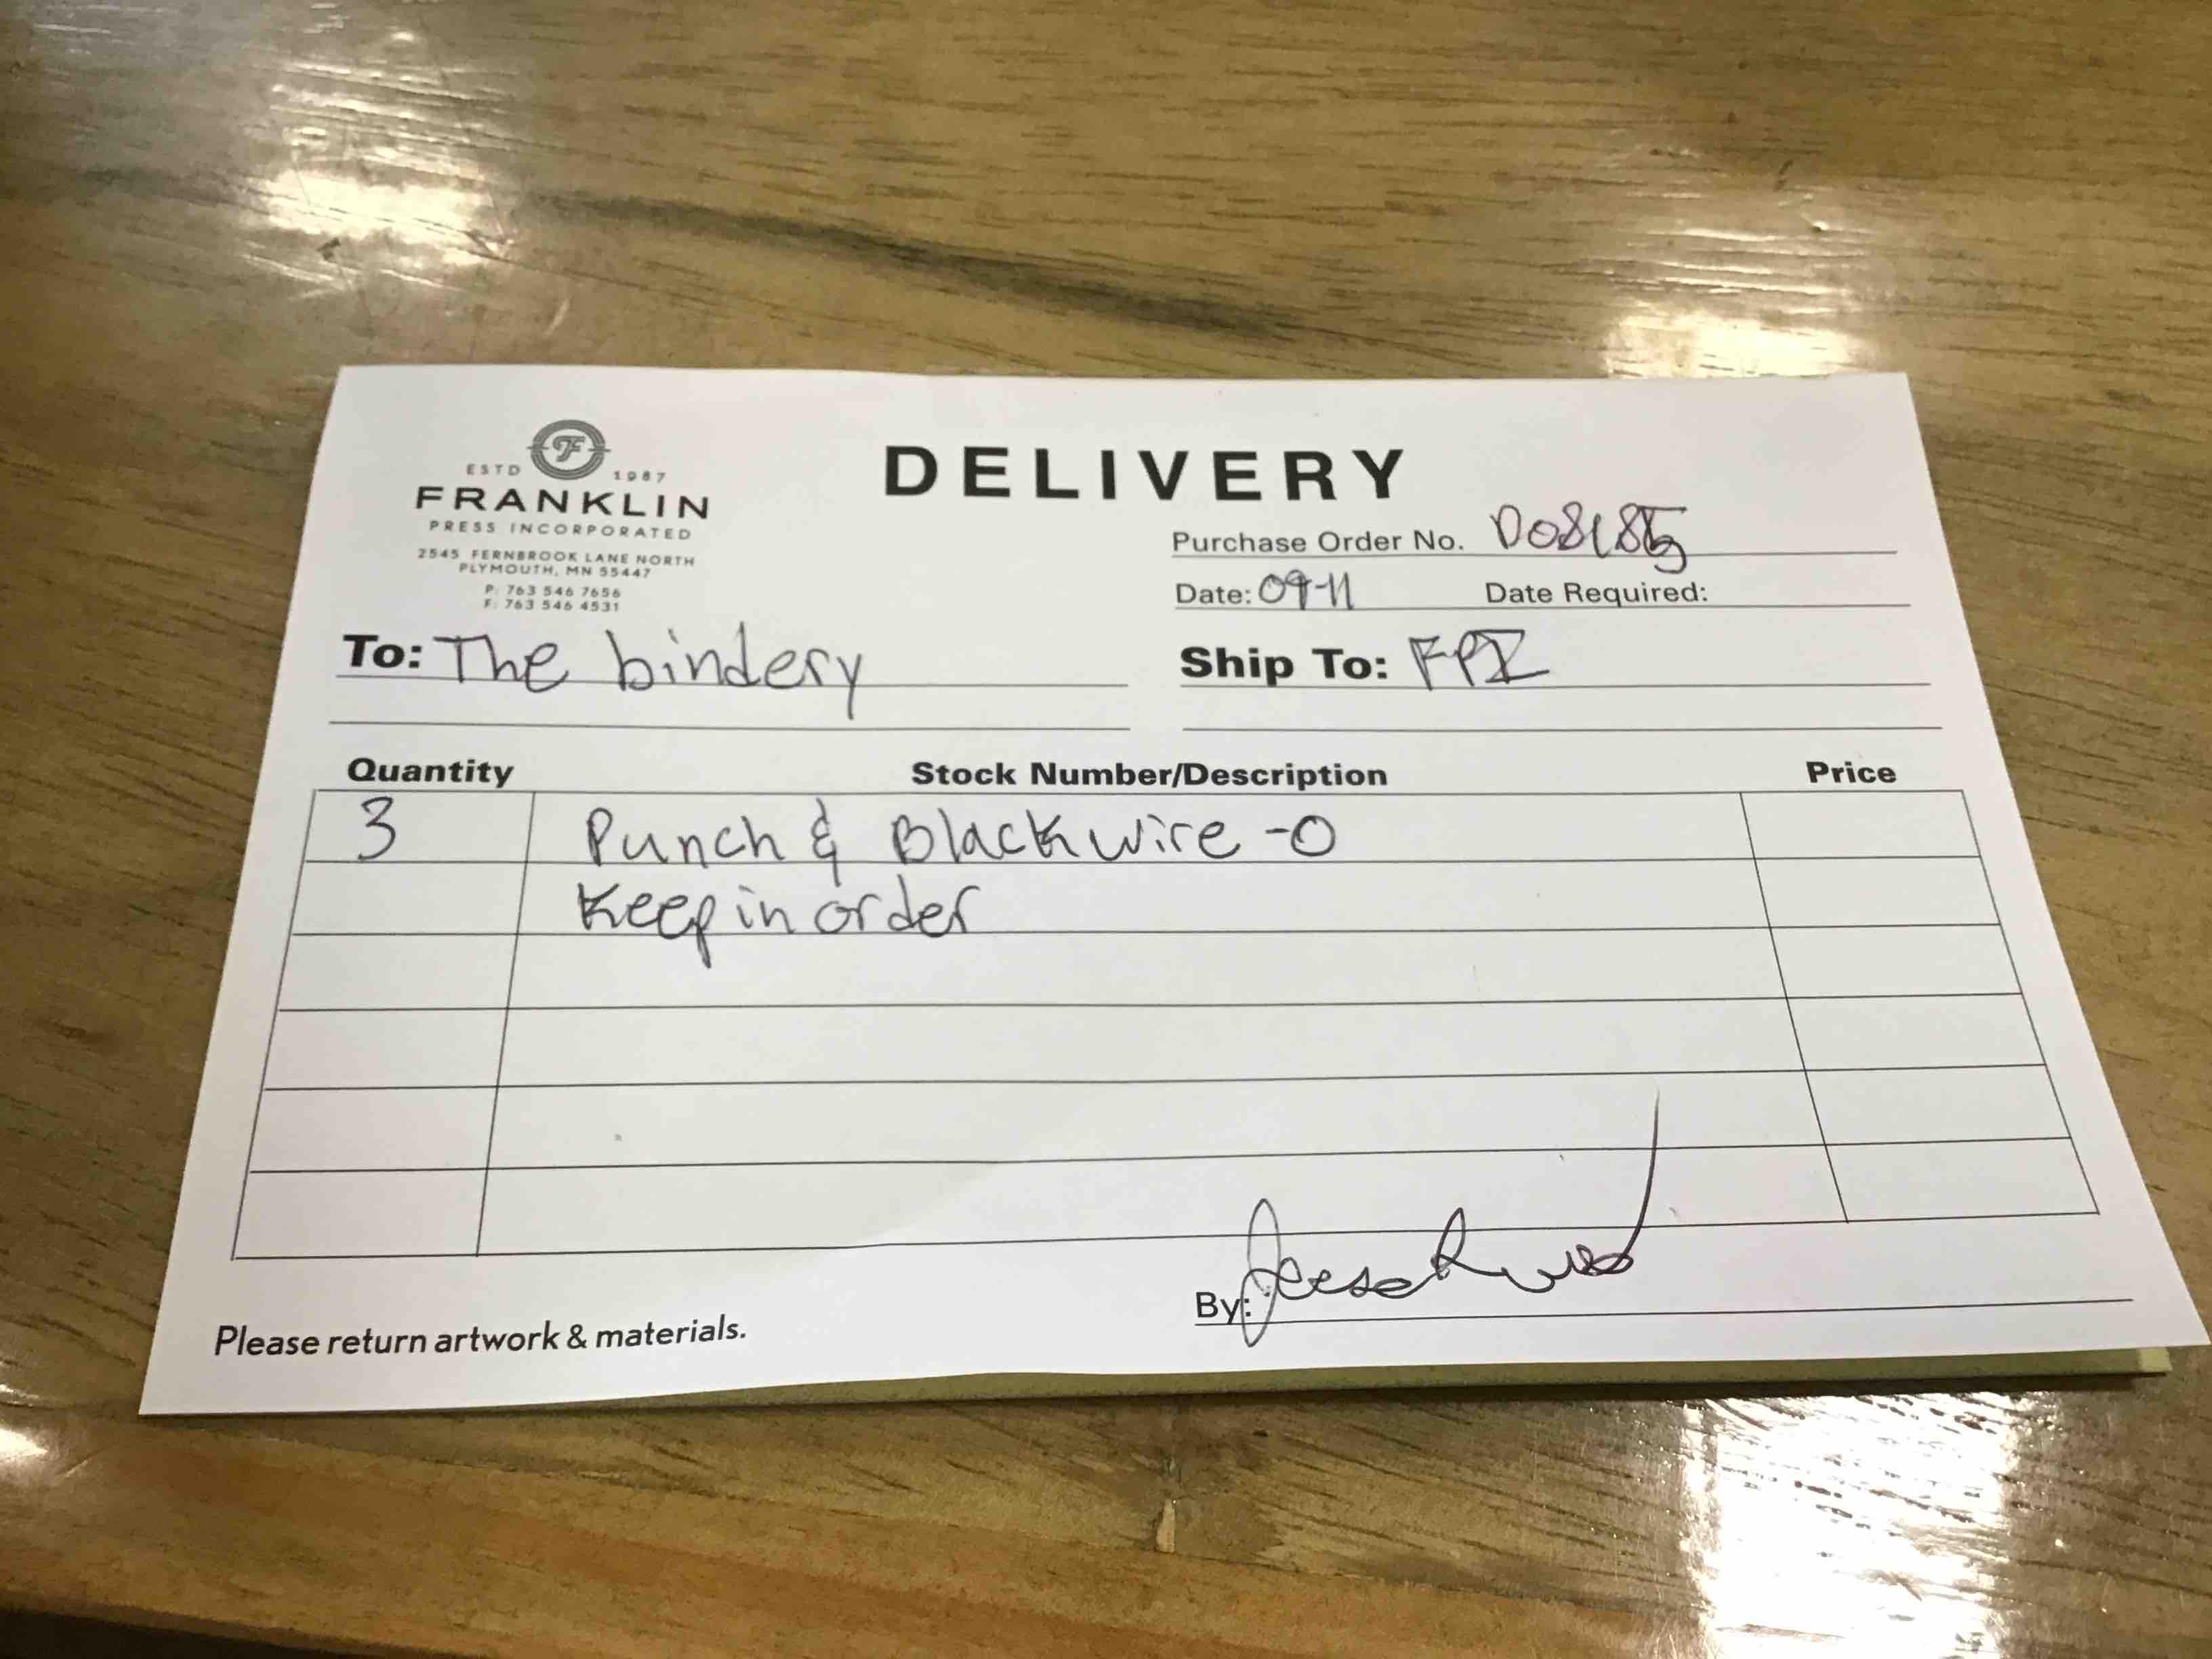 ESTD F 1987
FRANKLIN
PRESS INCORPORATED
2545 FERNBROOK LANE NORTH
PLYMOUTH, MN 55447
P: 763 546 7656
F: 763 546 4531
DELIVERY
Purchase Order No.
Date: 09-11 Date Required:
To: The bindery
Ship To: FPI
Quantity Stock Number/Description Price
3 Punch & Black wire-O
Keep in order
By:
Please return artwork & materials.